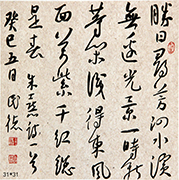 勝日尋芳泗水濱
無邊光景一時新
等閒識得東風
面萬紫千紅總
是春 朱熹詩一首
癸巳五日
31*31